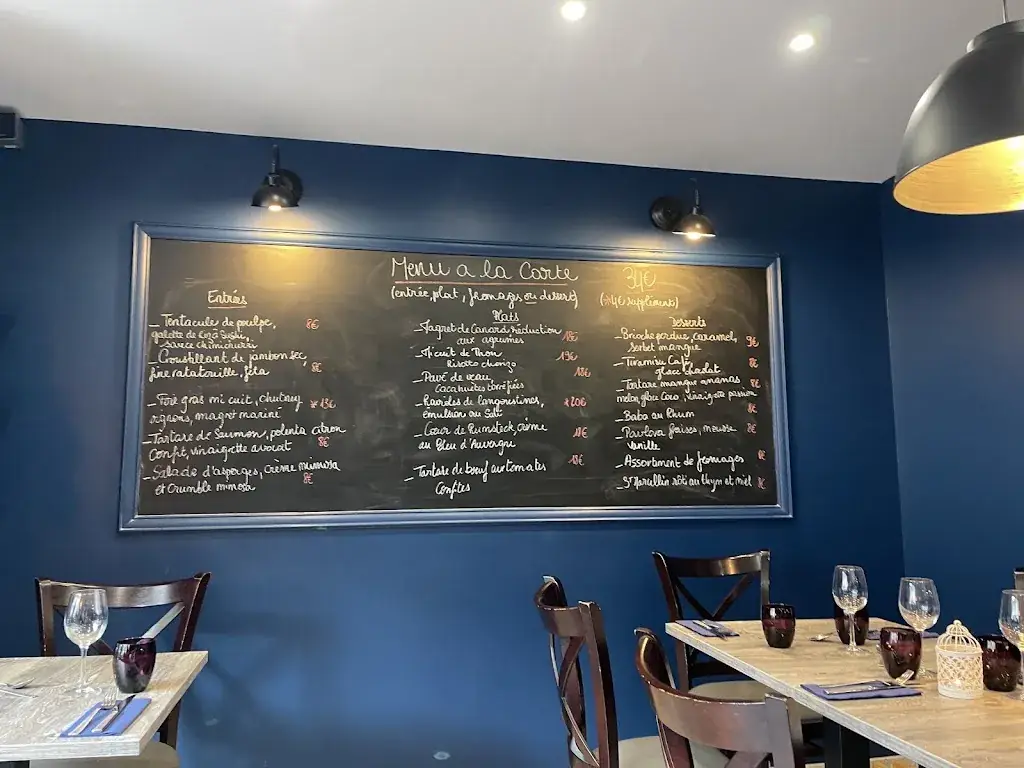 Menu a la Carte 34€
(entrée, plat, fromages ou dessert) (*4€ supplément)
Entrées
_ Tentacule de poulpe, 8€
galette de riz à Sushi,
sauce chimichurri
_ Croustillant de jambon sec,
fine ratatouille, féta 8€
_ Foie gras mi cuit, chutney *13€
oignons, magret mariné
_ Tartare de Saumon, polenta citron
Confit, vinaigrette avocat 8€
_ Salade d'asperges, crème mimosa
et Crumble mimosa 8€
Plats
_ Magret de Canard réduction 18€
aux agrumes
_ Mi cuit de Thon 19€
Risotto chorizo
_ Pavé de veau, 18€
Cacahuètes torréfiées
_ Ravioles de langoustines, *20€
émulsion au
_ Coeur de Rumsteck, crème
au Bleu d'Auvergne
_ Tartare de boeuf aux tomates 18€
Confites
Desserts
_ Brioche perdue, caramel, 9€
sorbet mangue
_ Tiramisu Café, 8€
glace Chocolat
_ Tartare mangue ananas, 8€
melon, glace Coco, vinaigrette passion
_ Baba au Rhum 8€
_ Pavlova fraises, mousse 8€
Vanille
_ Assortiment de fromages
_ St Marcellin rôti au thym et miel